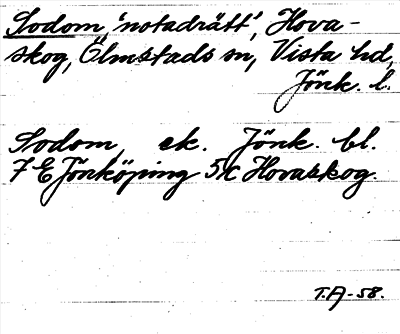 Sodom, 'notadrätt', Hova-
skog, Ölmstads sn, Vista hd,
Jönk. l.
Sodom, ek. Jönk. bl.
7 E Jönköping 5c Hovaskog.
T.A-58.